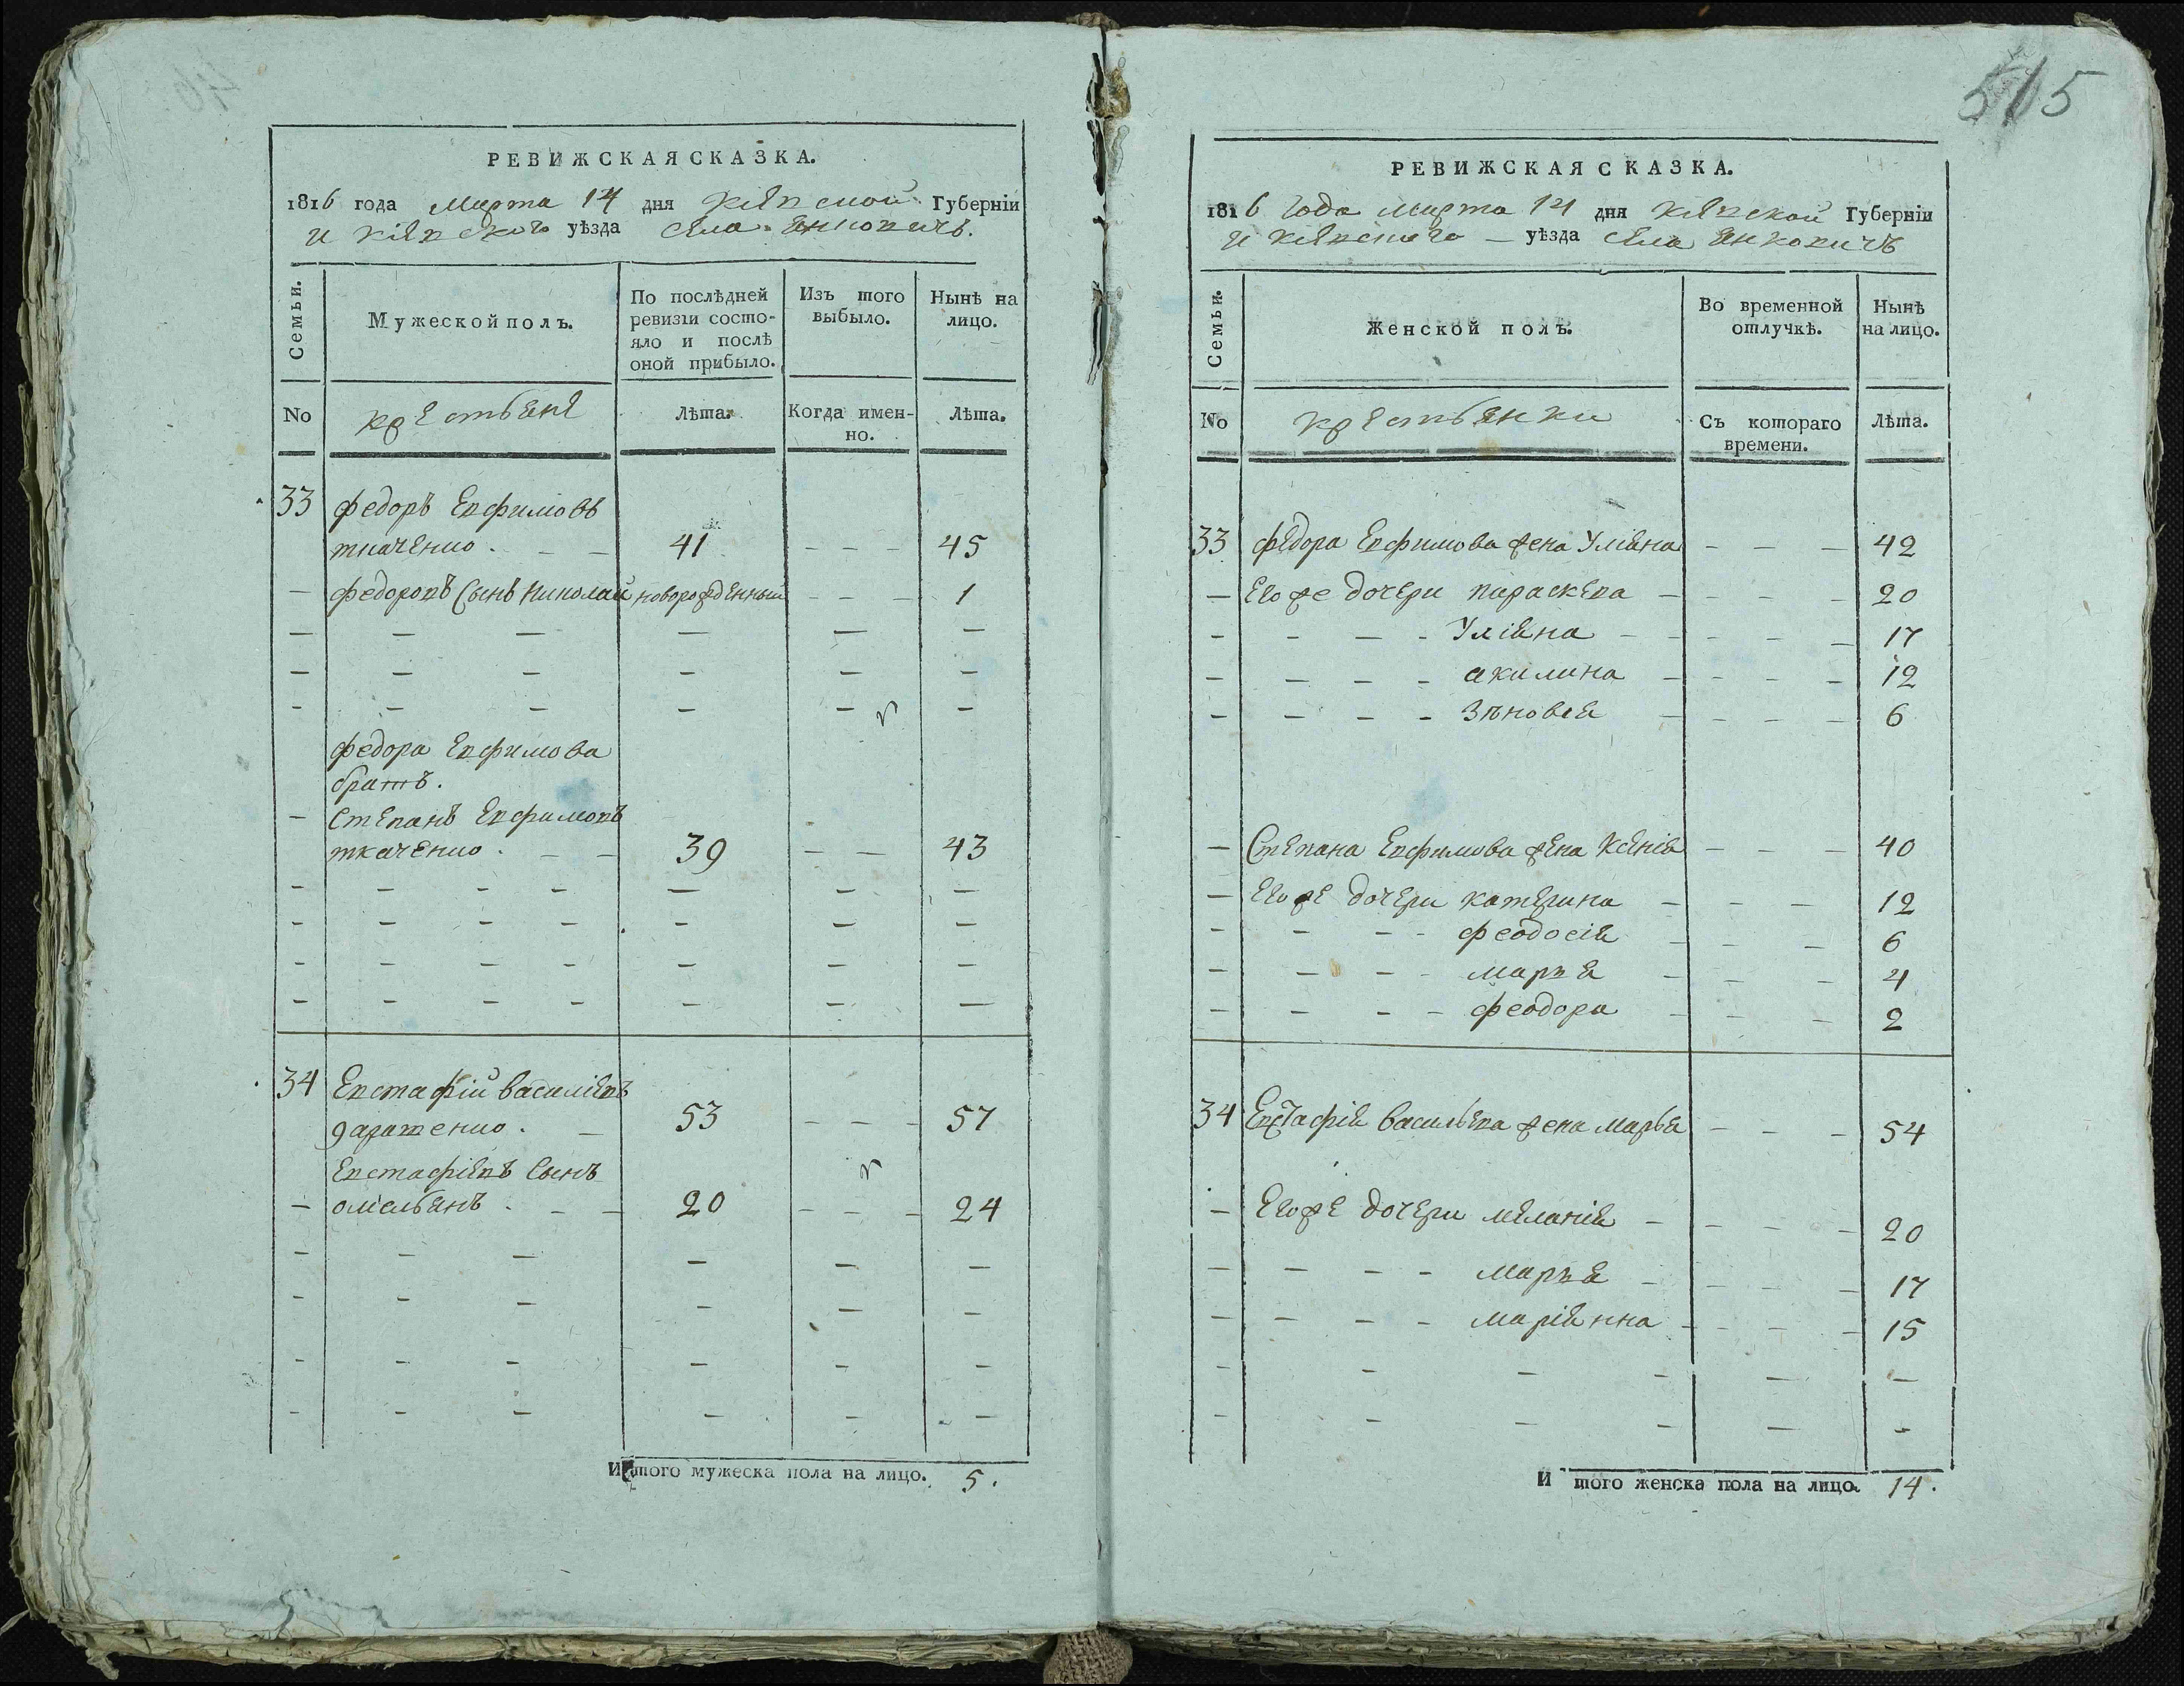 515
РЕВИЖСКАЯ СКАЗКА.
1816 года Марта 14 дня Кіевской Губерніи
и Кіевского уѣзда села Янковичъ.
Семьи.
Мужеской полъ.
По послѣдней ревизіи состояло и послѣ оной прибыло.
Изъ того выбыло.
Нынѣ на лицо.
No
крестьяне
Лѣта.
Когда именно.
Лѣта.
33 федоръ Евфимовъ
ткаченко . – – 41 – – – 45
– федоровъ Сынъ Николай новорожденный – – – 1
– – – – – –
– – – – – –
– – – – – –
федора Евфимова
братъ.
– Степанъ Евфимовъ
ткаченко . – – 39 – – 43
– – – – – – –
– – – – – – –
– – – – – – –
– – – – – – –
34 Евстафій василіевъ
– 53 – – – 57
Евстафіевъ Сынъ
– омельянъ . – – 20 – – – 24
– – – – – –
– – – – – –
– – – – – –
– – – – – –
Итого мужеска пола на лицо. 5.
РЕВИЖСКАЯ СКАЗКА.
1816 года Марта 14 дня Кіевской Губерніи
и Кіевского – уѣзда села Янковичъ
Семьи.
Женской полъ.
Во временной отлучкѣ.
Нынѣ на лицо.
No
крестьянки
Съ котораго времени.
Лѣта.
33 федора Евфимова жена Уліяна – – – 42
– Его же дочери параскева – – – – 20
– – – – Уліяна – – – – 17
– – – – акилина – – – – 12
– – – – Зѣновія – – – – 6
– Степана Евфимова жена Ксенія – – – 40
– Его же дочери катерина – – – 12
– – – – феодосія – – – 6
– – – – марья – – – 4
– – – – феодора – – – 2
34 Евстафія васильева жена марья – – – 54
– Его же дочери меланія – – – – 20
– – – – марья – – – – 17
– – – – маріянна – – – – 15
– – – – – –
– – – – – –
Итого женска пола на лицо. 14.